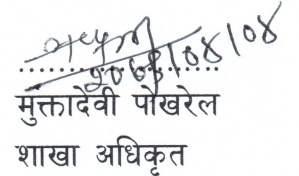 २०७३/०४/०४
मुक्तादेवी पोखरेल
शाखा अधिकृत